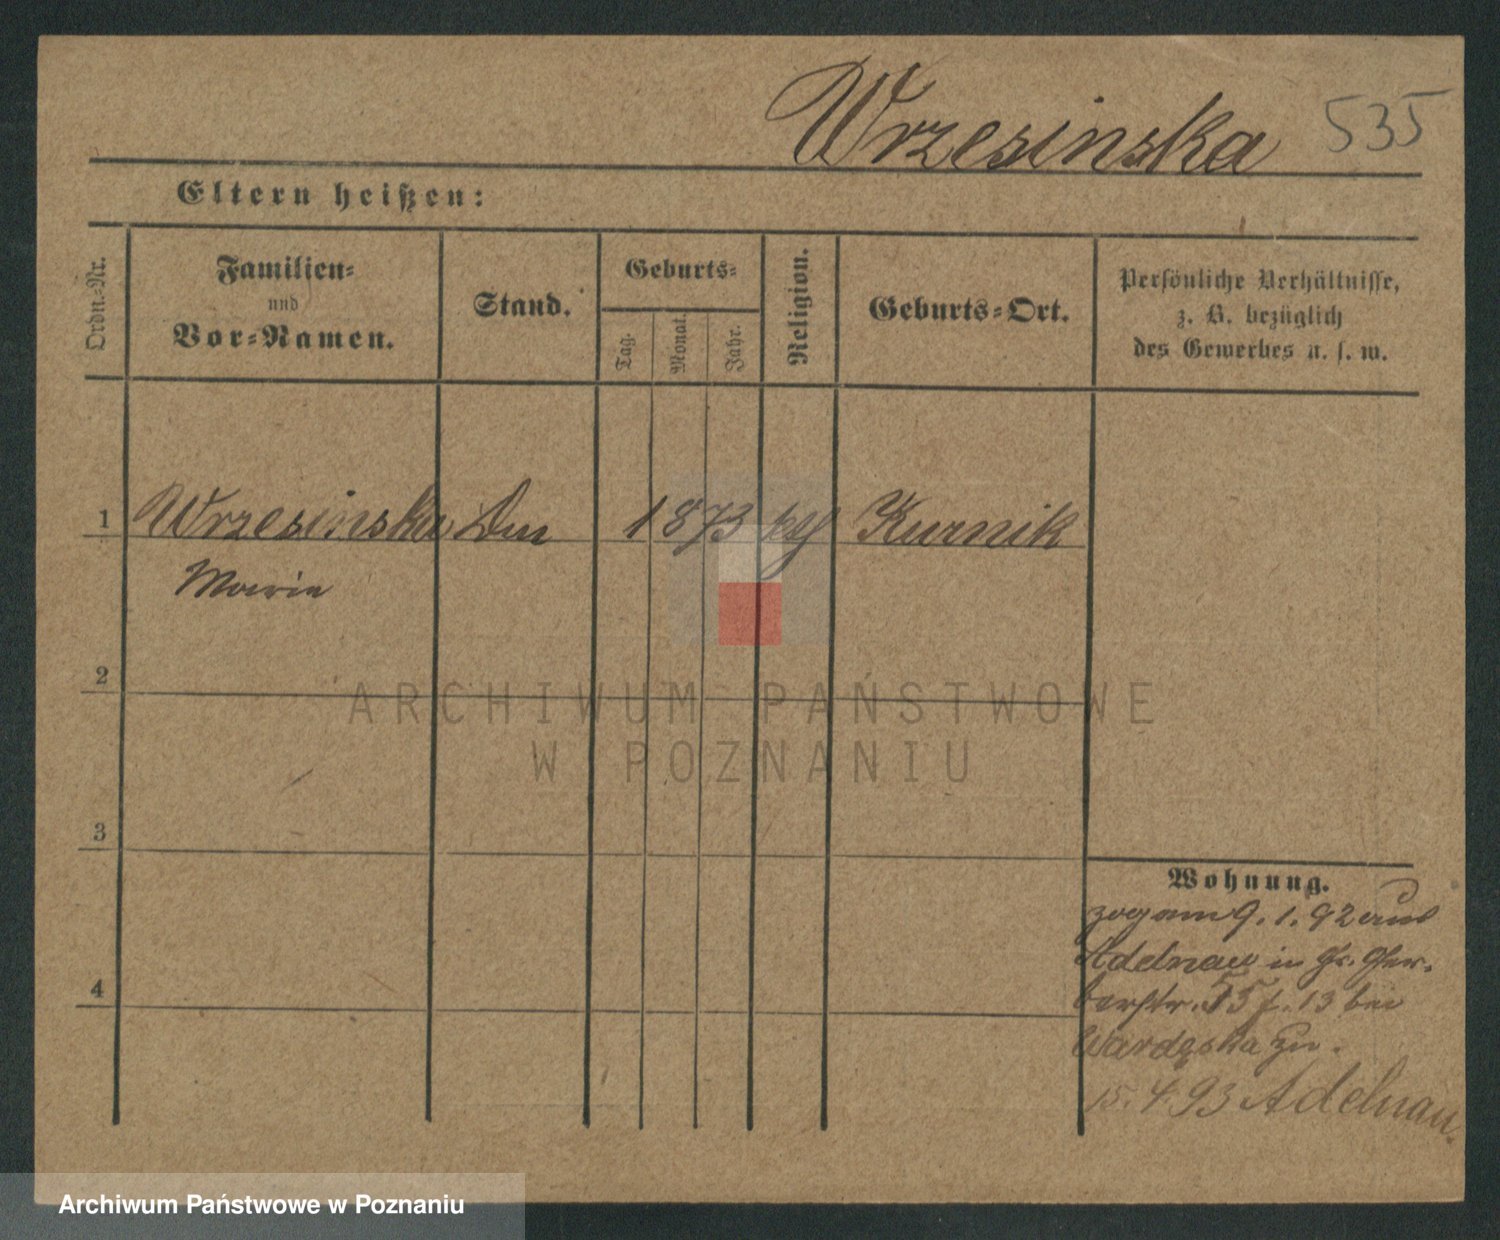 Wrzesinska 535
Eltern heißen:
Ordn.-Nr.
Familien-
und
Vor-Namen.
Stand.
Geburts-
Tag.
Monat.
Jahr.
Religion.
Geburts-Ort.
Persönliche Verhältnisse,
z. B. bezüglich
des Gewerbes u. s. w.
1 Wrzesinska 1873 kth Kurnik
Marie
2
3
4
Wohnung.
zog am 9. 1. 92 aus
Adelnau in Gr. Ger-
berstr. 55 f. 13 bei
zu.
15. 4. 93 Adelnau.
ARCHIWUM PAŃSTWOWE
W POZNANIU
Archiwum Państwowe w Poznaniu